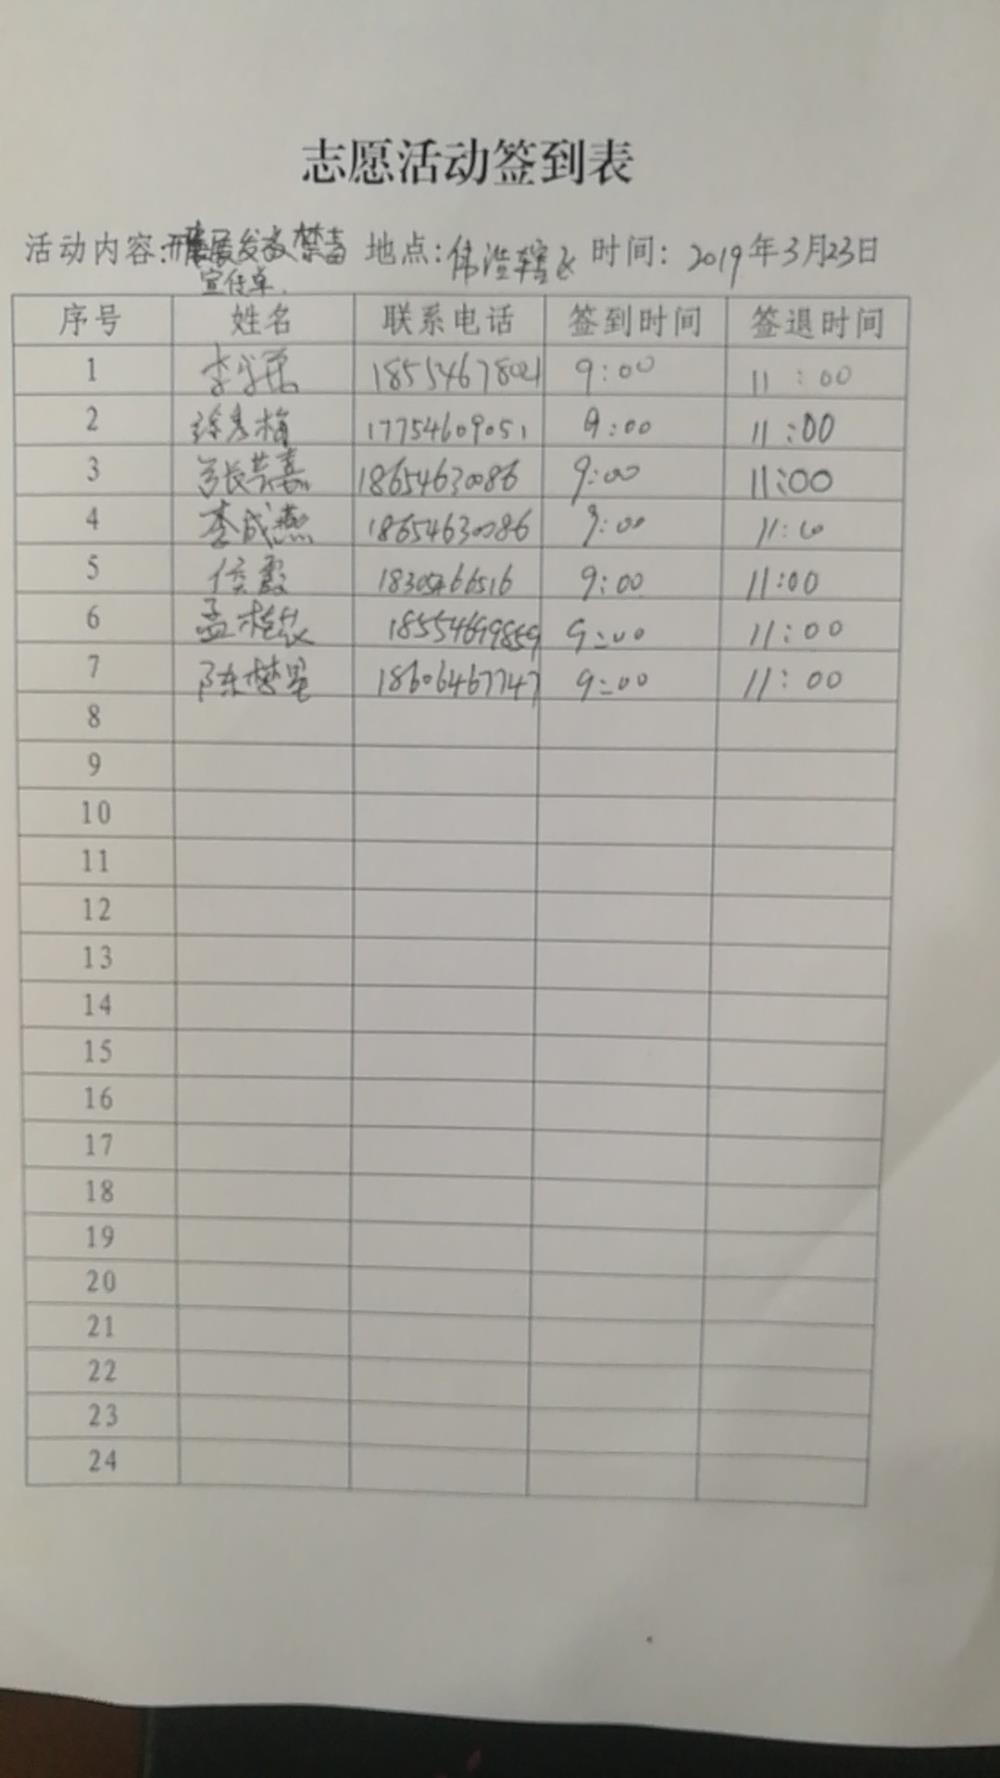 志愿活动签到表
活动内容:开展发放禁毒 地点:伟浩辖区 时间: 2019年3月23日
宣传单.
序号 姓名 联系电话 签到时间 签退时间
1 18554678021 9:00 11:00
2 徐秀梅 17754609051 9:00 11:00
3 张芸嘉 18654630086 9:00 11:00
4 李成燕 18654630086 9:00 11:00
5 侯霞 18305466516 9:00 11:00
6 孟桂花 18554699859 9:00 11:00
7 陈梦星 18606467747 9:00 11:00
8
9
10
11
12
13
14
15
16
17
18
19
20
21
22
23
24